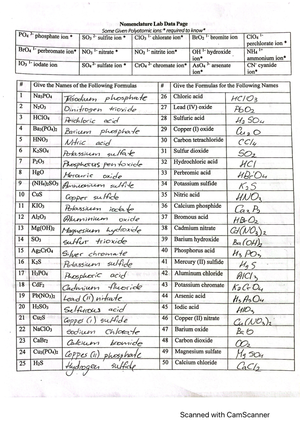 Nomenclature Lab Data Page
Some Given Polyatomic Ions * required to know*
PO₄ ³⁻ phosphate ion * SO₃ ²⁻ sulfite ion * ClO₃ ¹⁻ chlorate ion* BrO₃ ¹⁻ bromite ion ClO₄ ¹⁻ perchlorite ion *
BrO₄ ¹⁻ perbromate ion* NO₃ ¹⁻ nitrate * NO₂ ¹⁻ nitrite ion* OH ¹⁻ hydroxide ion* NH₄ ¹⁺ ammonium ion*
IO₃ ¹⁻ iodate ion SO₄ ²⁻ sulfate ion* CrO₄ ²⁻ chromate ion* AsO₄ ³⁻ arsenate ion* CN⁻ cyanide ion*
# Give the Names of the Following Formulas # Give the Formulas for the Following Names
1 Na₃PO₄ phosphate 26 Chloric acid HClO₃
2 N₂O₃ Dinitrogen trioxide 27 Lead (IV) oxide PbO₂
3 HClO₄ Perchloric acid 28 Sulfuric acid H₂SO₄
4 Ba₃(PO₄)₂ Barium phosphate 29 Copper (I) oxide Cu₂O
5 HNO₃ Nitric acid 30 Carbon tetrachloride CCl₄
6 K₂SO₄ Potassium sulfate 31 Sulfur dioxide SO₂
7 P₂O₅ Phosphorus pentoxide 32 Hydrochloric acid HCl
8 HgO Mercuric oxide 33 Perbromic acid HBrO₄
9 (NH₄)₂SO₃ Ammonium sulfite 34 Potassium sulfide K₂S
10 CuS Copper sulfide 35 Nitric acid HNO₃
11 KIO₃ Potassium iodate 36 Calcium phosphide Ca₃P₂
12 Al₂O₃ Aluminium oxide 37 Bromous acid HBrO₂
13 Mg(OH)₂ Magnesium hydroxide 38 Cadmium nitrate Cd(NO₃)₂
14 SO₃ sulfur trioxide 39 Barium hydroxide Ba(OH)₂
15 Ag₂CrO₄ Silver chromate 40 Phosphorous acid H₃PO₃
16 K₂S Potassium sulfide 41 Mercury (II) sulfide
17 H₃PO₄ Phosphoric acid 42 Aluminum chloride AlCl₃
18 CdF₂ Cadmium fluoride 43 Potassium chromate K₂CrO₄
19 Pb(NO₃)₂ Lead (II) nitrate 44 Arsenic acid H₃AsO₄
20 H₂SO₃ Sulfurous acid 45 Iodic acid HIO₃
21 Cu₂S Copper (I) sulfide 46 Copper (II) nitrate Cu(NO₃)₂
22 NaClO₃ Sodium Chlorate 47 Barium oxide BaO
23 CaBr₂ Calcium bromide 48 Carbon dioxide CO₂
24 Cu₃(PO₄)₂ Copper (II) phosphate 49 Magnesium sulfate MgSO₄
25 H₂S Hydrogen sulfide 50 Calcium chloride CaCl₂
Scanned with CamScanner